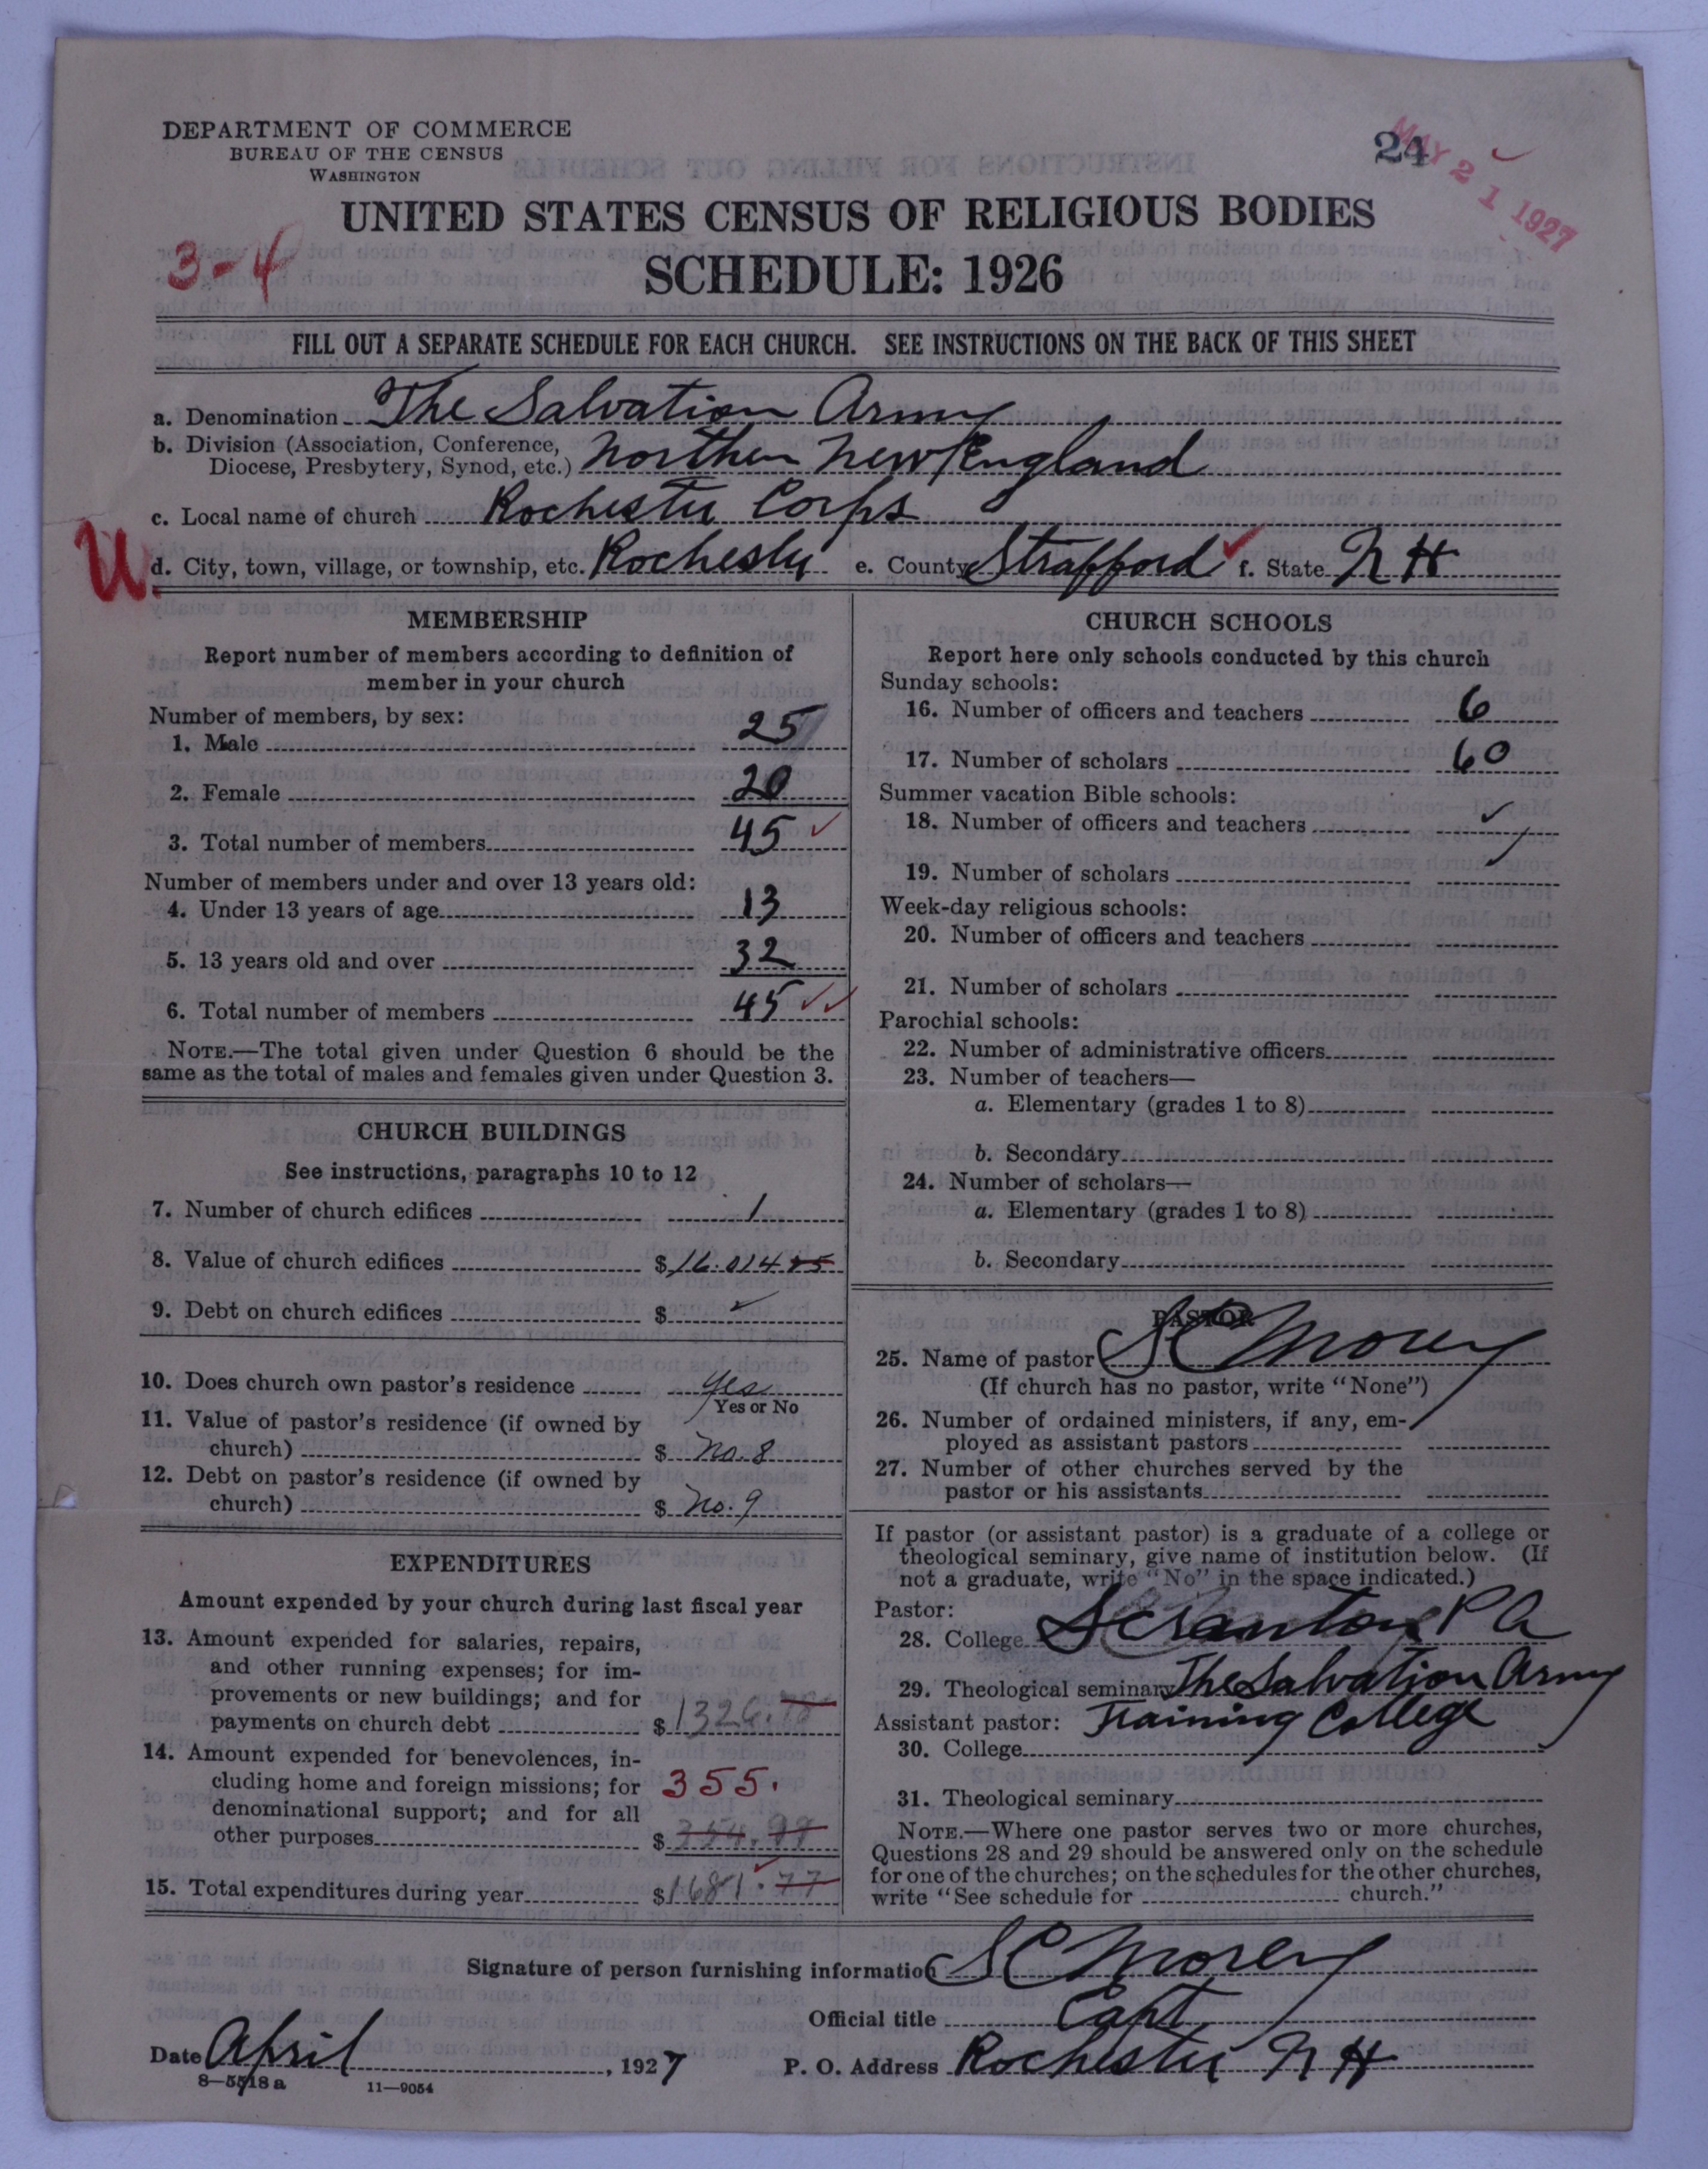 DEPARTMENT OF COMMERCE
BUREAU OF THE CENSUS
WASHINGTON
24
MAY 21 1927
UNITED STATES CENSUS OF RELIGIOUS BODIES
3-4
SCHEDULE: 1926
FILL OUT A SEPARATE SCHEDULE FOR EACH CHURCH. SEE INSTRUCTIONS ON THE BACK OF THIS SHEET
a. Denomination The Salvation Army
b. Division (Association, Conference,
Diocese, Presbytery, Synod, etc.) Northern New England
c. Local name of church Rochester Corps
U.
d. City, town, village, or township, etc. Rochester e. County Strafford f. State N H
MEMBERSHIP
Report number of members according to definition of
member in your church
Number of members, by sex:
1. Male 25
2. Female 20
3. Total number of members 45
Number of members under and over 13 years old:
4. Under 13 years of age 13
5. 13 years old and over 32
6. Total number of members 45
NOTE.—The total given under Question 6 should be the
same as the total of males and females given under Question 3.
CHURCH BUILDINGS
See instructions, paragraphs 10 to 12
7. Number of church edifices 1
8. Value of church edifices $ 16.014
9. Debt on church edifices $
10. Does church own pastor's residence yes
Yes or No
11. Value of pastor's residence (if owned by
church) $ no. 8
12. Debt on pastor's residence (if owned by
church) $ no. 9
EXPENDITURES
Amount expended by your church during last fiscal year
13. Amount expended for salaries, repairs,
and other running expenses; for im-
provements or new buildings; and for
payments on church debt $ 1326.78
14. Amount expended for benevolences, in-
cluding home and foreign missions; for 355.
denominational support; and for all
other purposes $ 354.99
15. Total expenditures during year $ 1681.77
CHURCH SCHOOLS
Report here only schools conducted by this church
Sunday schools:
16. Number of officers and teachers 6
17. Number of scholars 60
Summer vacation Bible schools:
18. Number of officers and teachers
19. Number of scholars
Week-day religious schools:
20. Number of officers and teachers
21. Number of scholars
Parochial schools:
22. Number of administrative officers
23. Number of teachers—
a. Elementary (grades 1 to 8)
b. Secondary
24. Number of scholars—
a. Elementary (grades 1 to 8)
b. Secondary
PASTOR
25. Name of pastor S C Morey
(If church has no pastor, write "None")
26. Number of ordained ministers, if any, em-
ployed as assistant pastors
27. Number of other churches served by the
pastor or his assistants
If pastor (or assistant pastor) is a graduate of a college or
theological seminary, give name of institution below. (If
not a graduate, write "No" in the space indicated.)
Pastor:
28. College Scranton, P A
29. Theological seminary The Salvation Army
Assistant pastor: Training College
30. College
31. Theological seminary
NOTE.—Where one pastor serves two or more churches,
Questions 28 and 29 should be answered only on the schedule
for one of the churches; on the schedules for the other churches,
write "See schedule for church."
Signature of person furnishing information S C Morey
Official title Capt.
Date April, 1927 P. O. Address Rochester N H
8—5518 a 11—9054